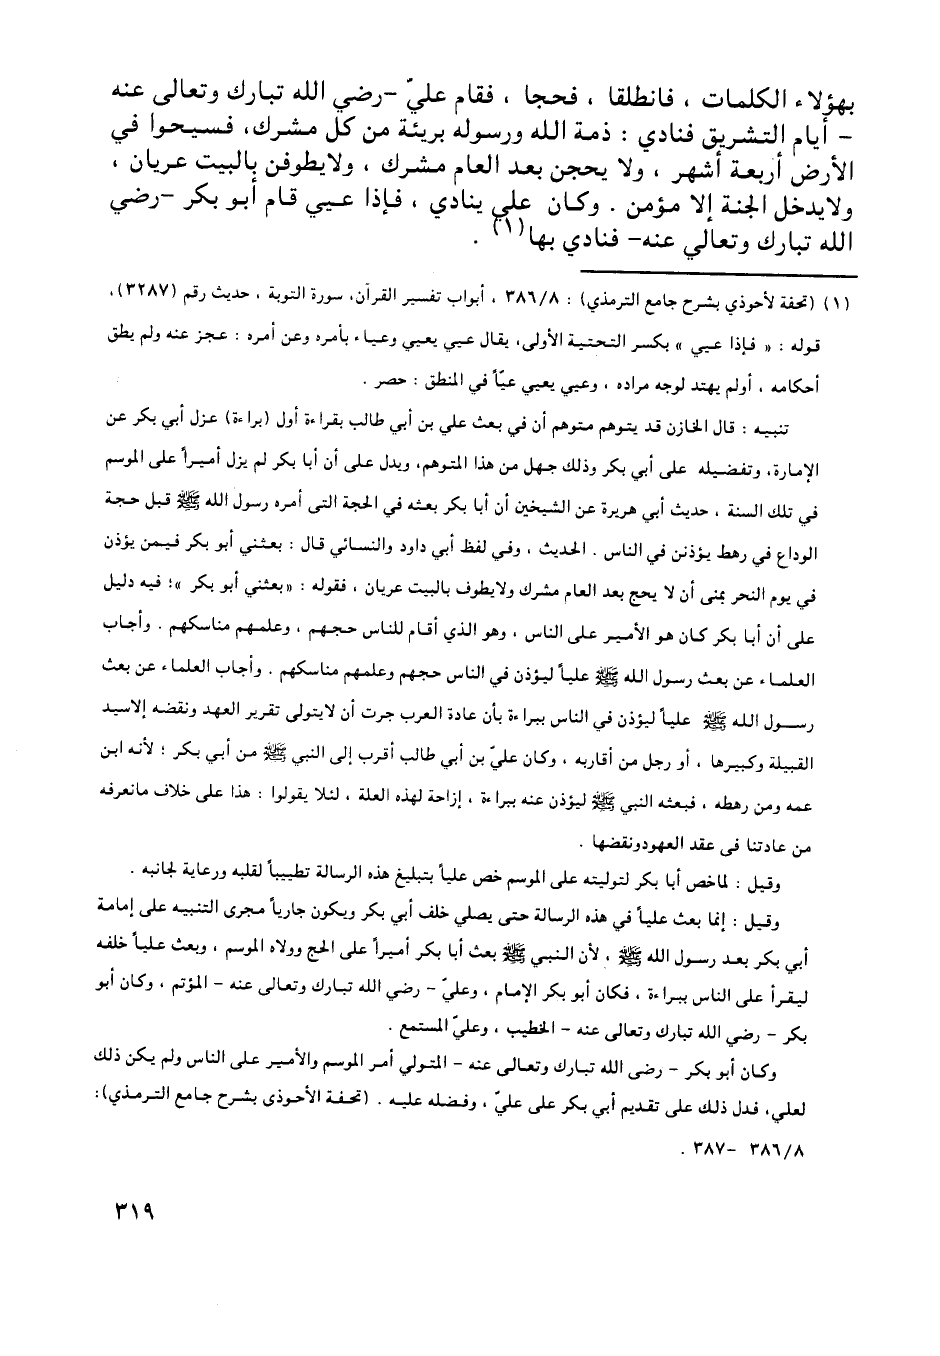 بهؤلاء الكلمات ، فانطلقا ، فحجا ، فقام عليّ –رضي الله تبارك وتعالى عنه
– أيام التشريق فنادي : ذمة الله ورسوله بريئة من كل مشرك، فسيحوا في
الأرض أربعة أشهر ، ولا يحجن بعد العام مشرك ، ولايطوفن بالبيت عريان ،
ولايدخل الجنة إلا مؤمن . وكان علي ينادي ، فإذا عيي قام أبو بكر –رضي
الله تبارك وتعالي عنه– فنادي بها(١) .
(١) (تحفة لأحوذي بشرح جامع الترمذي) : ٣٨٦/٨ ، أبواب تفسير القرآن، سورة التوبة ، حديث رقم (٣٢٨٧)،
قوله : « فإذا عيي » بكسر التحتية الأولى، يقال عيي يعيي وعياء بأمره وعن أمره : عجز عنه ولم يطق
أحكامه ، أولم يهتد لوجه مراده ، وعيي يعيي عيّاً في المنطق : حصر .
تنبيه : قال الخازن قد يتوهم متوهم أن في بعث علي بن أبي طالب بقراءة أول (براءة) عزل أبي بكر عن
الإمارة، وتفضيله على أبي بكر وذلك جهل من هذا المتوهم، ويدل على أن أبا بكر لم يزل أميراً على الموسم
في تلك السنة ، حديث أبي هريرة عن الشيخين أن أبا بكر بعثه في الحجة التى أمره رسول الله ﷺ قبل حجة
الوداع في رهط يؤذنن في الناس . الحديث ، وفي لفظ أبي داود والنسائي قال : بعثني أبو بكر فيمن يؤذن
في يوم النحر بمنى أن لا يحج بعد العام مشرك ولايطوف بالبيت عريان ، فقوله : «بعثني أبو بكر »؛ فيه دليل
على أن أبا بكر كان هو الأمير على الناس ، وهو الذي أقام للناس حجهم ، وعلمهم مناسكهم . وأجاب
العلماء عن بعث رسول الله ﷺ علياً ليؤذن في الناس حجهم وعلمهم مناسكهم . وأجاب العلماء عن بعث
رسول الله ﷺ علياً ليؤذن في الناس ببراءة بأن عادة العرب جرت أن لايتولى تقرير العهد ونقضه إلاسيد
القبيلة وكبيرها ، أو رجل من أقاربه ، وكان عليّ بن أبي طالب أقرب إلى النبي ﷺ من أبي بكر ؛ لأنه ابن
عمه ومن رهطه ، فبعثه النبي ﷺ ليؤذن عنه ببراءة ، إزاحة لهذه العلة ، لئلا يقولوا : هذا على خلاف مانعرفه
من عادتنا فى عقد العهودونقضها .
وقيل : لماخص أبا بكر لتوليته على الموسم خص علياً بتبليغ هذه الرسالة تطييباً لقلبه ورعاية لجانبه .
وقيل : إنما بعث علياً في هذه الرسالة حتى يصلي خلف أبي بكر ويكون جارياً مجرى التنبيه على إمامة
أبي بكر بعد رسول الله ﷺ ، لأن النبي ﷺ بعث أبا بكر أميراً على الحج وولاه الموسم ، وبعث علياً خلفه
ليقرأ على الناس ببراءة ، فكان أبو بكر الإمام ، وعليّ – رضي الله تبارك وتعالى عنه – المؤتم ، وكان أبو
بكر – رضي الله تبارك وتعالى عنه – الخطيب ، وعليّ المستمع .
وكان أبو بكر – رضي الله تبارك وتعالى عنه – المتولي أمر الموسم والأمير على الناس ولم يكن ذلك
لعلي، فدل ذلك على تقديم أبي بكر على عليّ ، وفضله عليه . (تحفة الأحوذى بشرح جامع الترمذي):
٣٨٦/٨ –٣٨٧ .
٣١٩